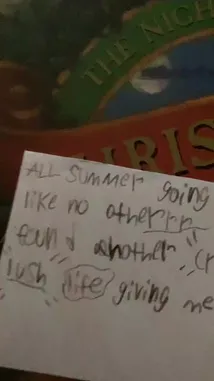 THE NICH
RIS
ALL Summer going
like no otherrrr
found another (r
lush life giving me